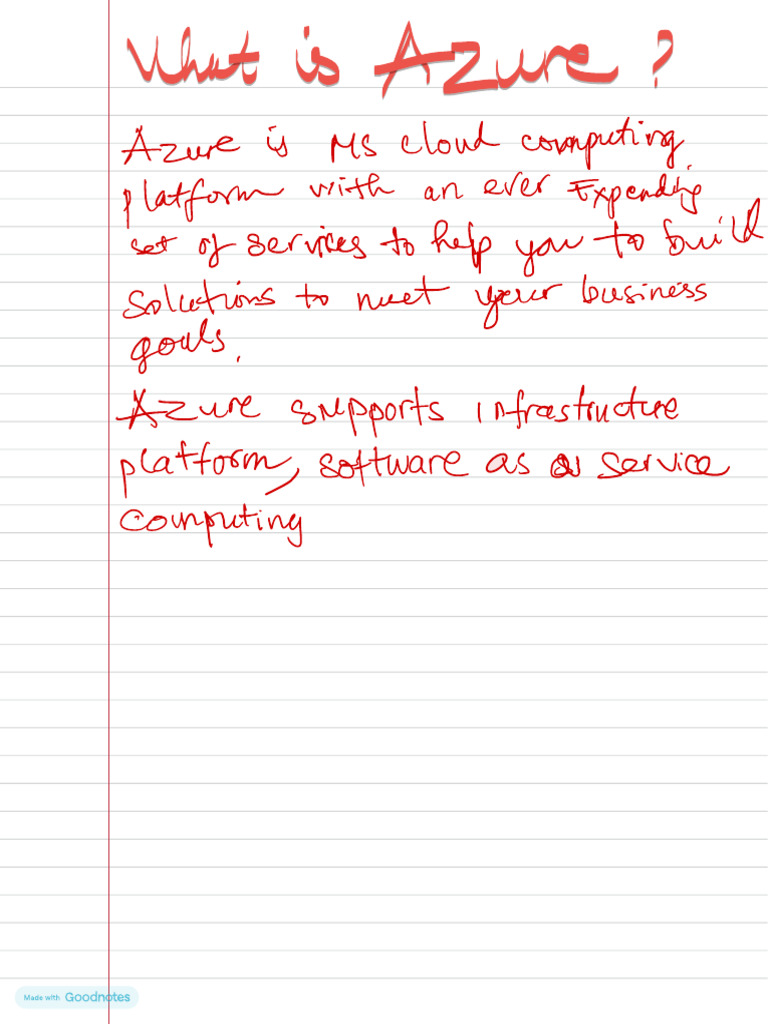 What is Azure ?
Azure is MS cloud computing
platform with an ever Expending
set of services to help you to build
solutions to meet your business
goals.
Azure supports infrastructure
platform, software as a service
computing
Made with Goodnotes